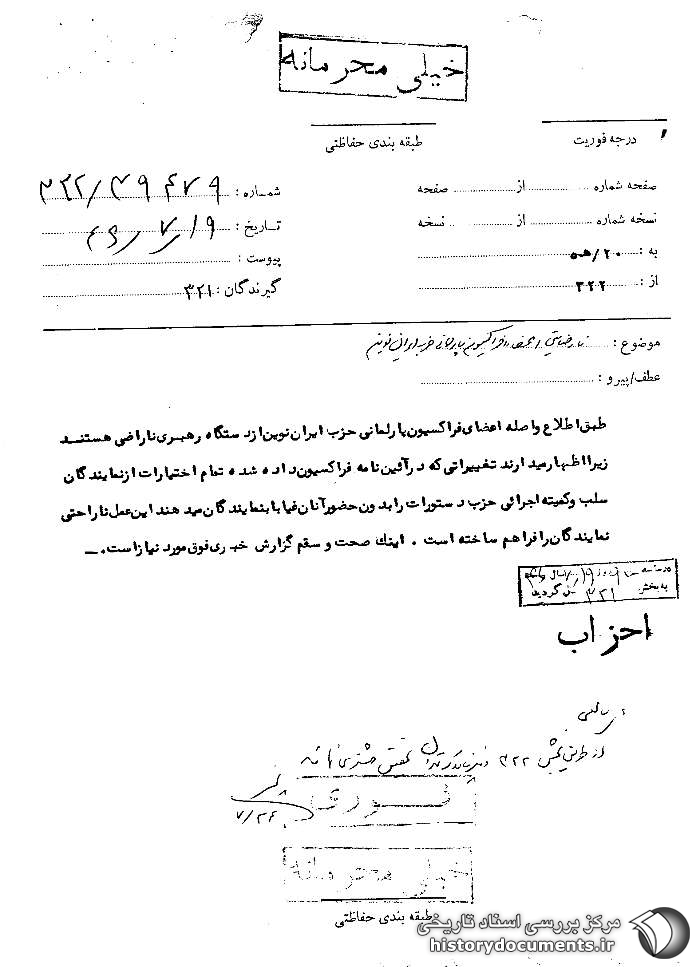 خیلی محرمانه
درجه فوریت
طبقه بندی حفاظتی
صفحه شماره از صفحه
نسخه شماره از نسخه
به : ۲۰/ﻫ
از : ۳۲۲
شماره : ۳۲۲/۳۹۴۷۹
تاریخ : ۴۹/۷/۱۹
پیوست :
گیرندگان : ۳۲۱
موضوع : نارضایتی اعضاء فراکسیون پارلمانی حزب ایران نوین
عطف/پیرو :
طبق اطلاع واصله اعضای فراکسیون پارلمانی حزب ایران نوین از دستگاه رهبری ناراضی هستند
زیرا اظهار میدارند تغییراتی که در آئین نامه فراکسیون داده شده تمام اختیارات از نمایندگان
سلب وکمیته اجرائی حزب دستورات را بدون حضور آنان غیابا بنمایندگان میدهند این عمل ناراحتی
نمایندگان را فراهم ساخته است . اینک صحت و سقم گزارش خبری فوق مورد نیاز است.ـ
به بخش ۳۲۱ گردید
احزاب
از طریق بخش ۳۲۲ تحقیق بیشتری
فوری
۷/۲۶
خیلی محرمانه
طبقه بندی حفاظتی
مرکز بررسی اسناد تاریخی
historydocuments.ir